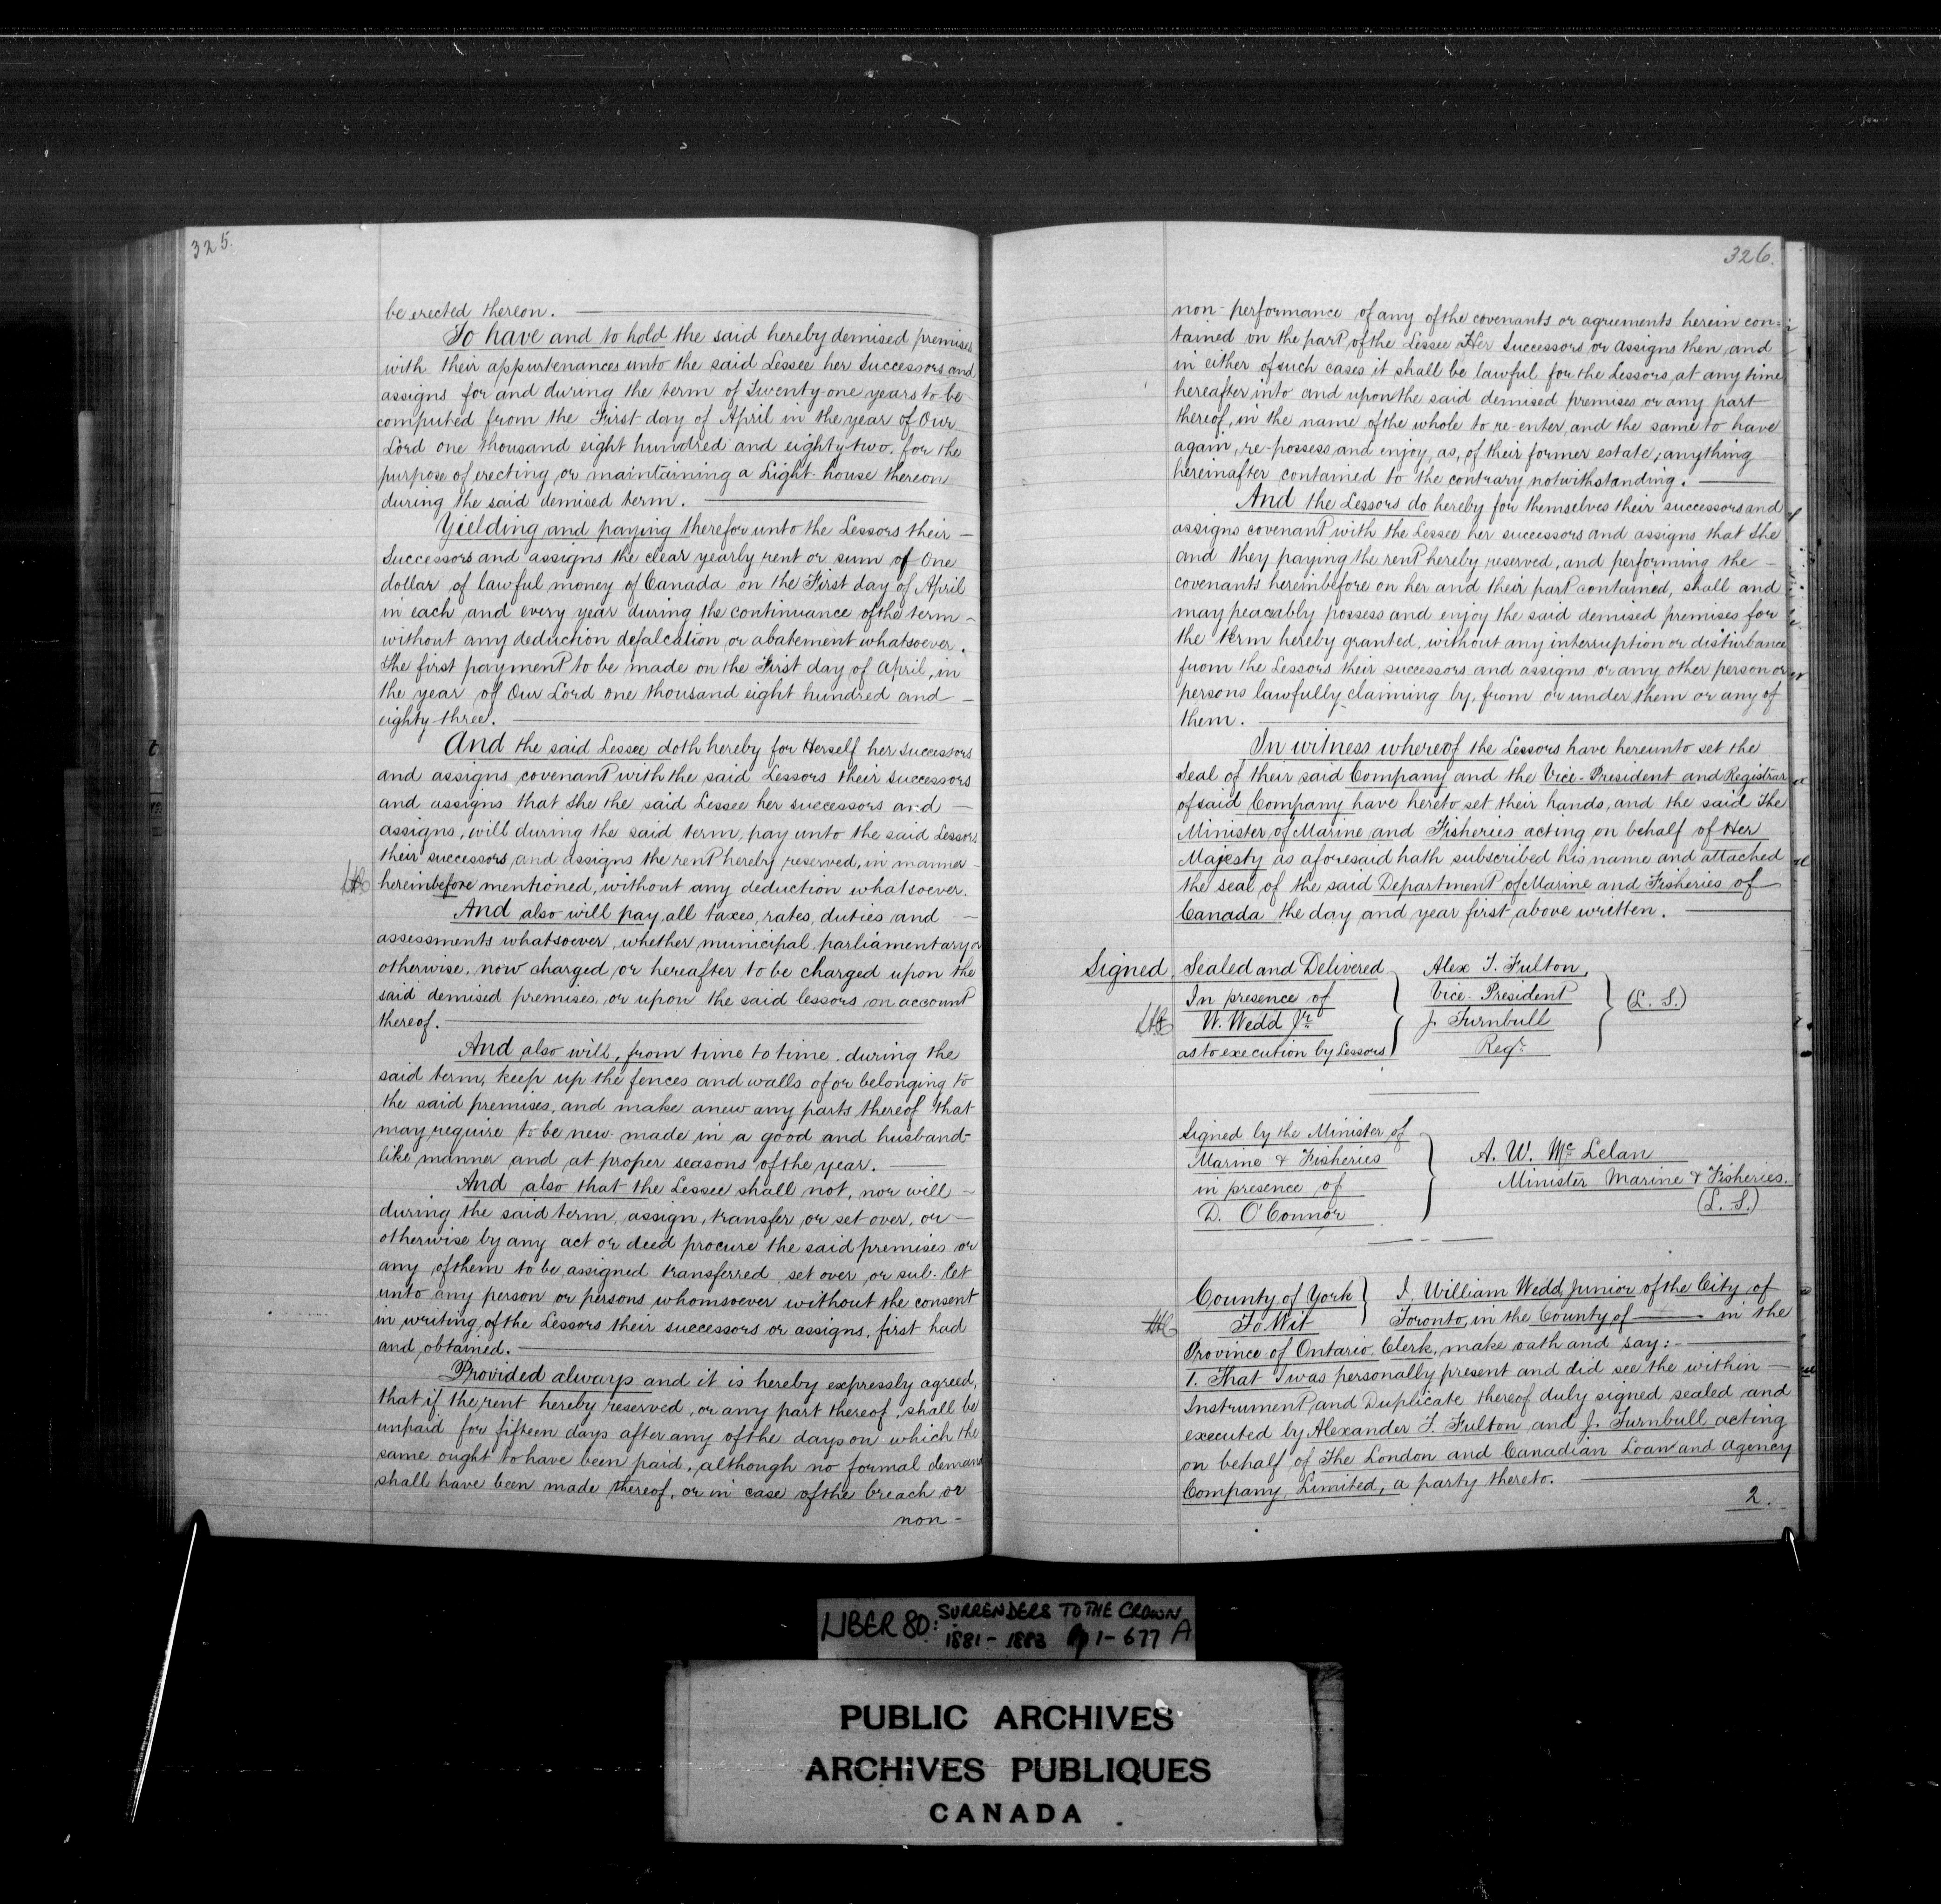 325.
be erected thereon.
To have and to hold the said hereby demised premises
with their appurtenances unto the said Lessee her Successors and
assigns for and during the term of Twenty-one years to be
computed from the First day of April in the year of Our
Lord one thousand eight hundred and eighty-two. for the
purpose of erecting or maintaining a Light-house thereon
during the said demised term.
Yielding and paying therefor unto the Lessors their
Successors and assigns the clear yearly rent or sum of One
dollar of lawful money of Canada on the First day of April
in each and every year during the continuance of the term
without any deduction defalcation or abatement whatsoever.
The first payment to be made on the First day of April, in
the year of Our Lord one thousand eight hundred and
eighty-three.
And the said Lessee doth hereby for Herself her successors
and assigns covenant with the said Lessors their successors
and assigns that She the said Lessee her successors and
assigns, will during the said term, pay unto the said Lessors
their successors and assigns the rent hereby reserved, in manner
hereinbefore mentioned, without any deduction whatsoever.
And also will pay all taxes, rates, duties and
assessments whatsoever, whether municipal parliamentary or
otherwise, now charged or hereafter to be charged upon the
said demised premises or upon the said lessors on account
thereof.
And also will, from time to time during the
said term, keep up the fences and walls of or belonging to
the said premises, and make anew any parts thereof that
may require to be new-made in a good and husband-
like manner and at proper seasons of the year.
And also that the Lessee shall not, nor will
during the said term, assign, transfer or set over, or
otherwise by any act or deed procure the said premises or
any of them to be assigned transferred set over or sub-let
unto any person or persons whomsoever without the consent
in writing of the Lessors their successors or assigns, first had
and obtained.
Provided always and it is hereby expressly agreed,
that if the rent hereby reserved, or any part thereof, shall be
unpaid for fifteen days after any of the days on which the
same ought to have been paid, although no formal demand
shall have been made thereof, or in case of the breach or
non-
326.
non-performance of any of the covenants or agreements herein con-
tained on the part of the Lessee Her Successors or Assigns then and
in either of such cases it shall be lawful for the Lessors at any time
hereafter into and upon the said demised premises or any part
thereof, in the name of the whole to re-enter, and the same to have
again, re-possess and enjoy, as, of their former estate; anything
hereinafter contained to the contrary notwithstanding.
And the Lessors do hereby for themselves their successors and
assigns covenant with the Lessee her successors and assigns that She
and they paying the rent hereby reserved, and performing the
covenants hereinbefore on her and their part contained, shall and
may peaceably possess and enjoy the said demised premises for
the term hereby granted, without any interruption or disturbance
from the Lessors their successors and assigns or any other person or
persons lawfully claiming by, from or under them or any of
them.
In witness whereof the Lessors have hereunto set the
Seal of their said Company and the Vice-President and Registrar
of said Company have hereto set their hands, and the said The
Minister of Marine and Fisheries acting on behalf of Her
Majesty as aforesaid hath subscribed his name and attached
the seal of the said Department of Marine and Fisheries of
Canada the day and year first above written.
Signed Sealed and Delivered Alex T. Fulton,
In presence of Vice-President (L. S.)
W. Wedd Jr. J. Turnbull
as to execution by Lessors Regr.
Signed by the Minister of
Marine & Fisheries A. W. McLelan
in presence of Minister Marine & Fisheries.
D. O'Connor (L. S.)
County of York I, William Wedd Junior of the City of
To Wit Toronto, in the County of —— in the
Province of Ontario, Clerk, make oath and say:
1. That I was personally present and did see the within
Instrument and Duplicate thereof duly signed sealed and
executed by Alexander T. Fulton and J. Turnbull acting
on behalf of The London and Canadian Loan and Agency
Company, Limited, a party thereto.
2.
LIBER 80: SURRENDERS TO THE CROWN
1881-1883 pp 1-677 A
PUBLIC ARCHIVES
ARCHIVES PUBLIQUES
CANADA